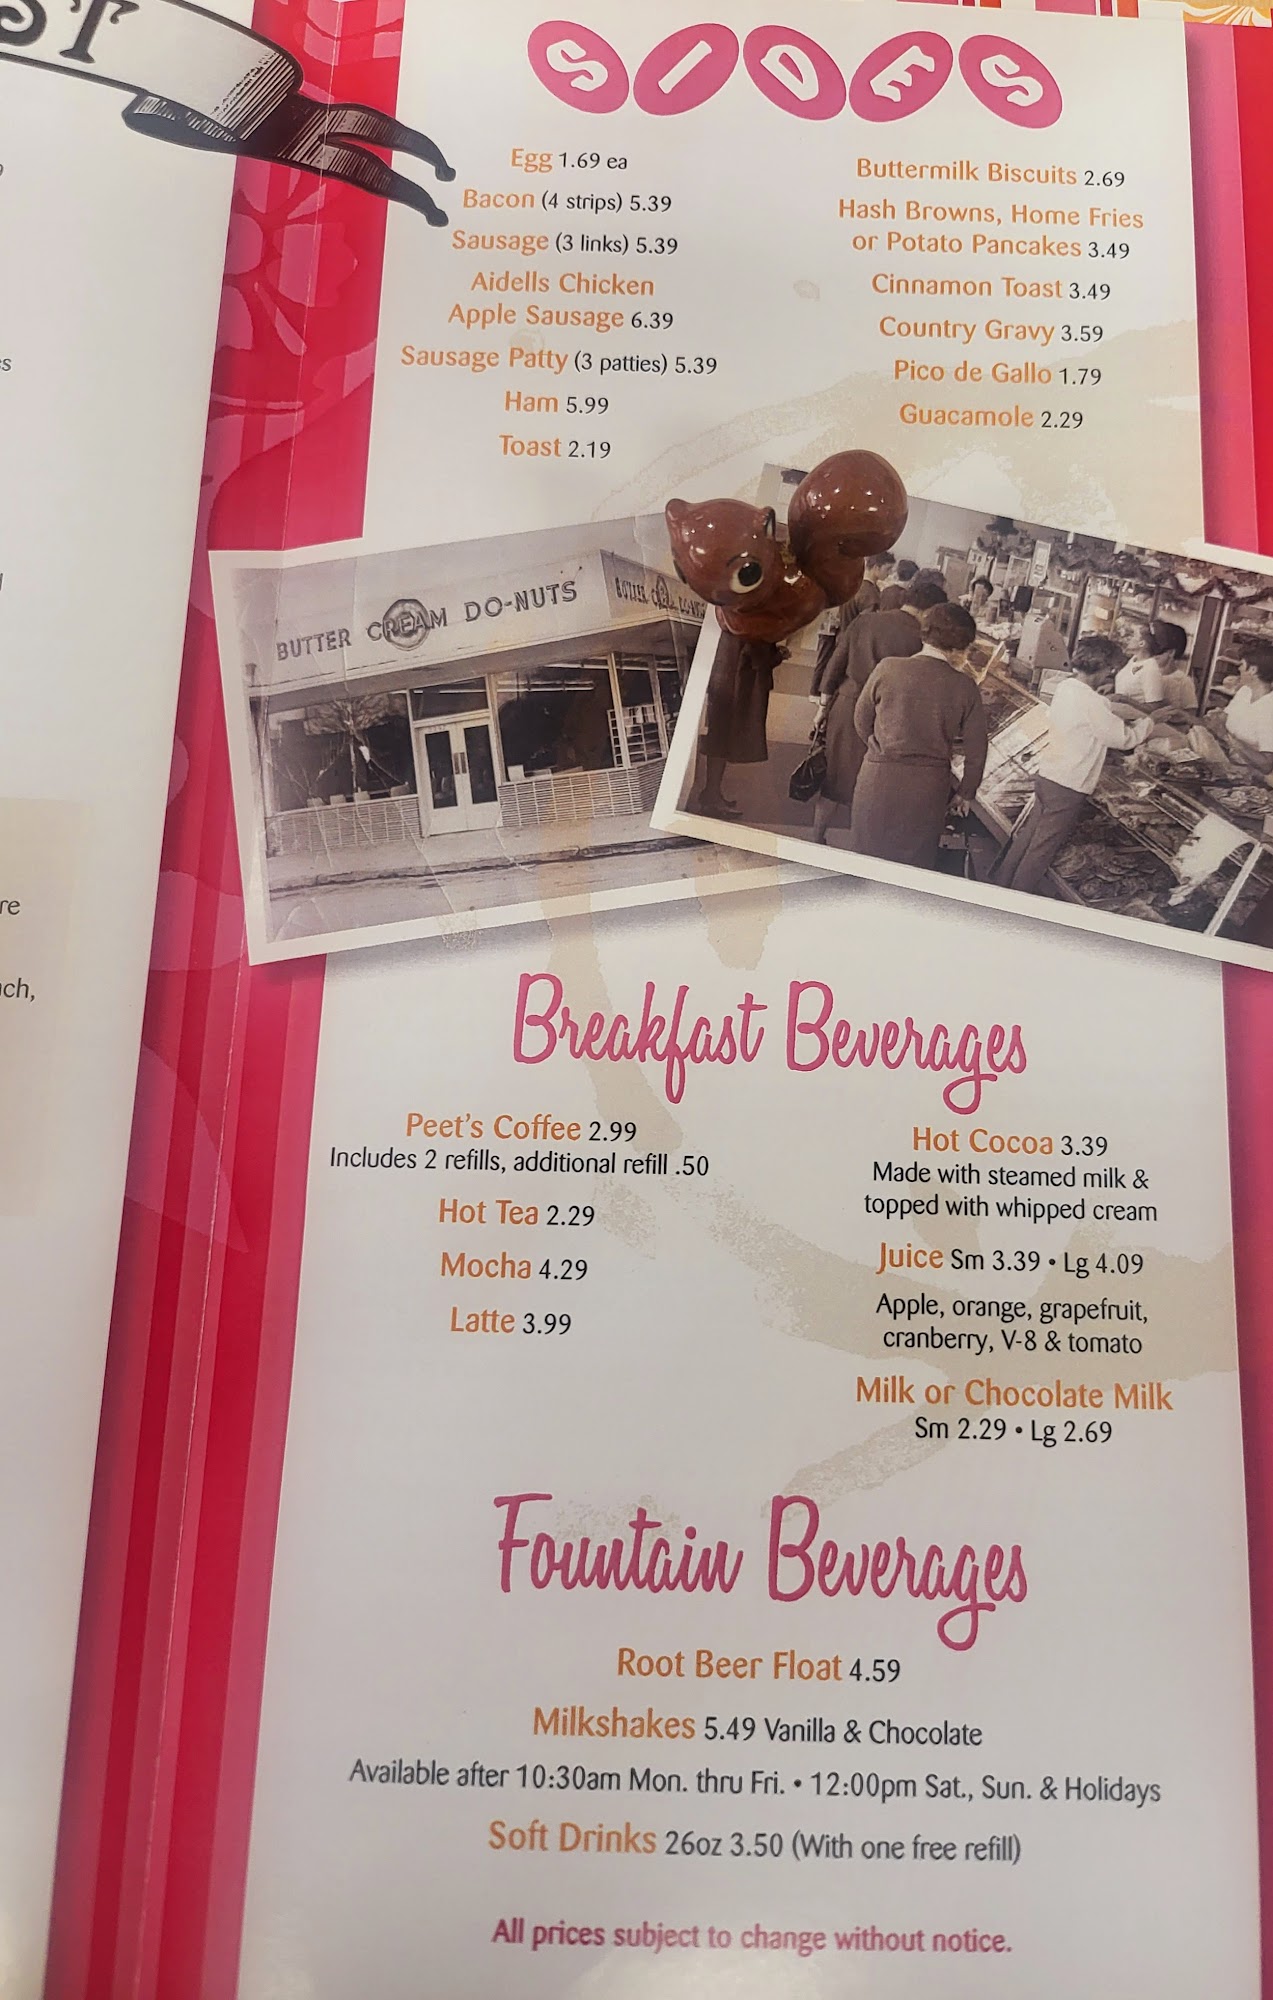 SIDES
Egg 1.69 ea
Bacon (4 strips) 5.39
Sausage (3 links) 5.39
Aidells Chicken
Apple Sausage 6.39
Sausage Patty (3 patties) 5.39
Ham 5.99
Toast 2.19
Buttermilk Biscuits 2.69
Hash Browns, Home Fries
or Potato Pancakes 3.49
Cinnamon Toast 3.49
Country Gravy 3.59
Pico de Gallo 1.79
Guacamole 2.29
BUTTER CREAM DO-NUTS
Breakfast Beverages
Peet's Coffee 2.99
Includes 2 refills, additional refill .50
Hot Tea 2.29
Mocha 4.29
Latte 3.99
Hot Cocoa 3.39
Made with steamed milk &
topped with whipped cream
Juice Sm 3.39 • Lg 4.09
Apple, orange, grapefruit,
cranberry, V-8 & tomato
Milk or Chocolate Milk
Sm 2.29 • Lg 2.69
Fountain Beverages
Root Beer Float 4.59
Milkshakes 5.49 Vanilla & Chocolate
Available after 10:30am Mon. thru Fri. • 12:00pm Sat., Sun. & Holidays
Soft Drinks 26oz 3.50 (With one free refill)
All prices subject to change without notice.